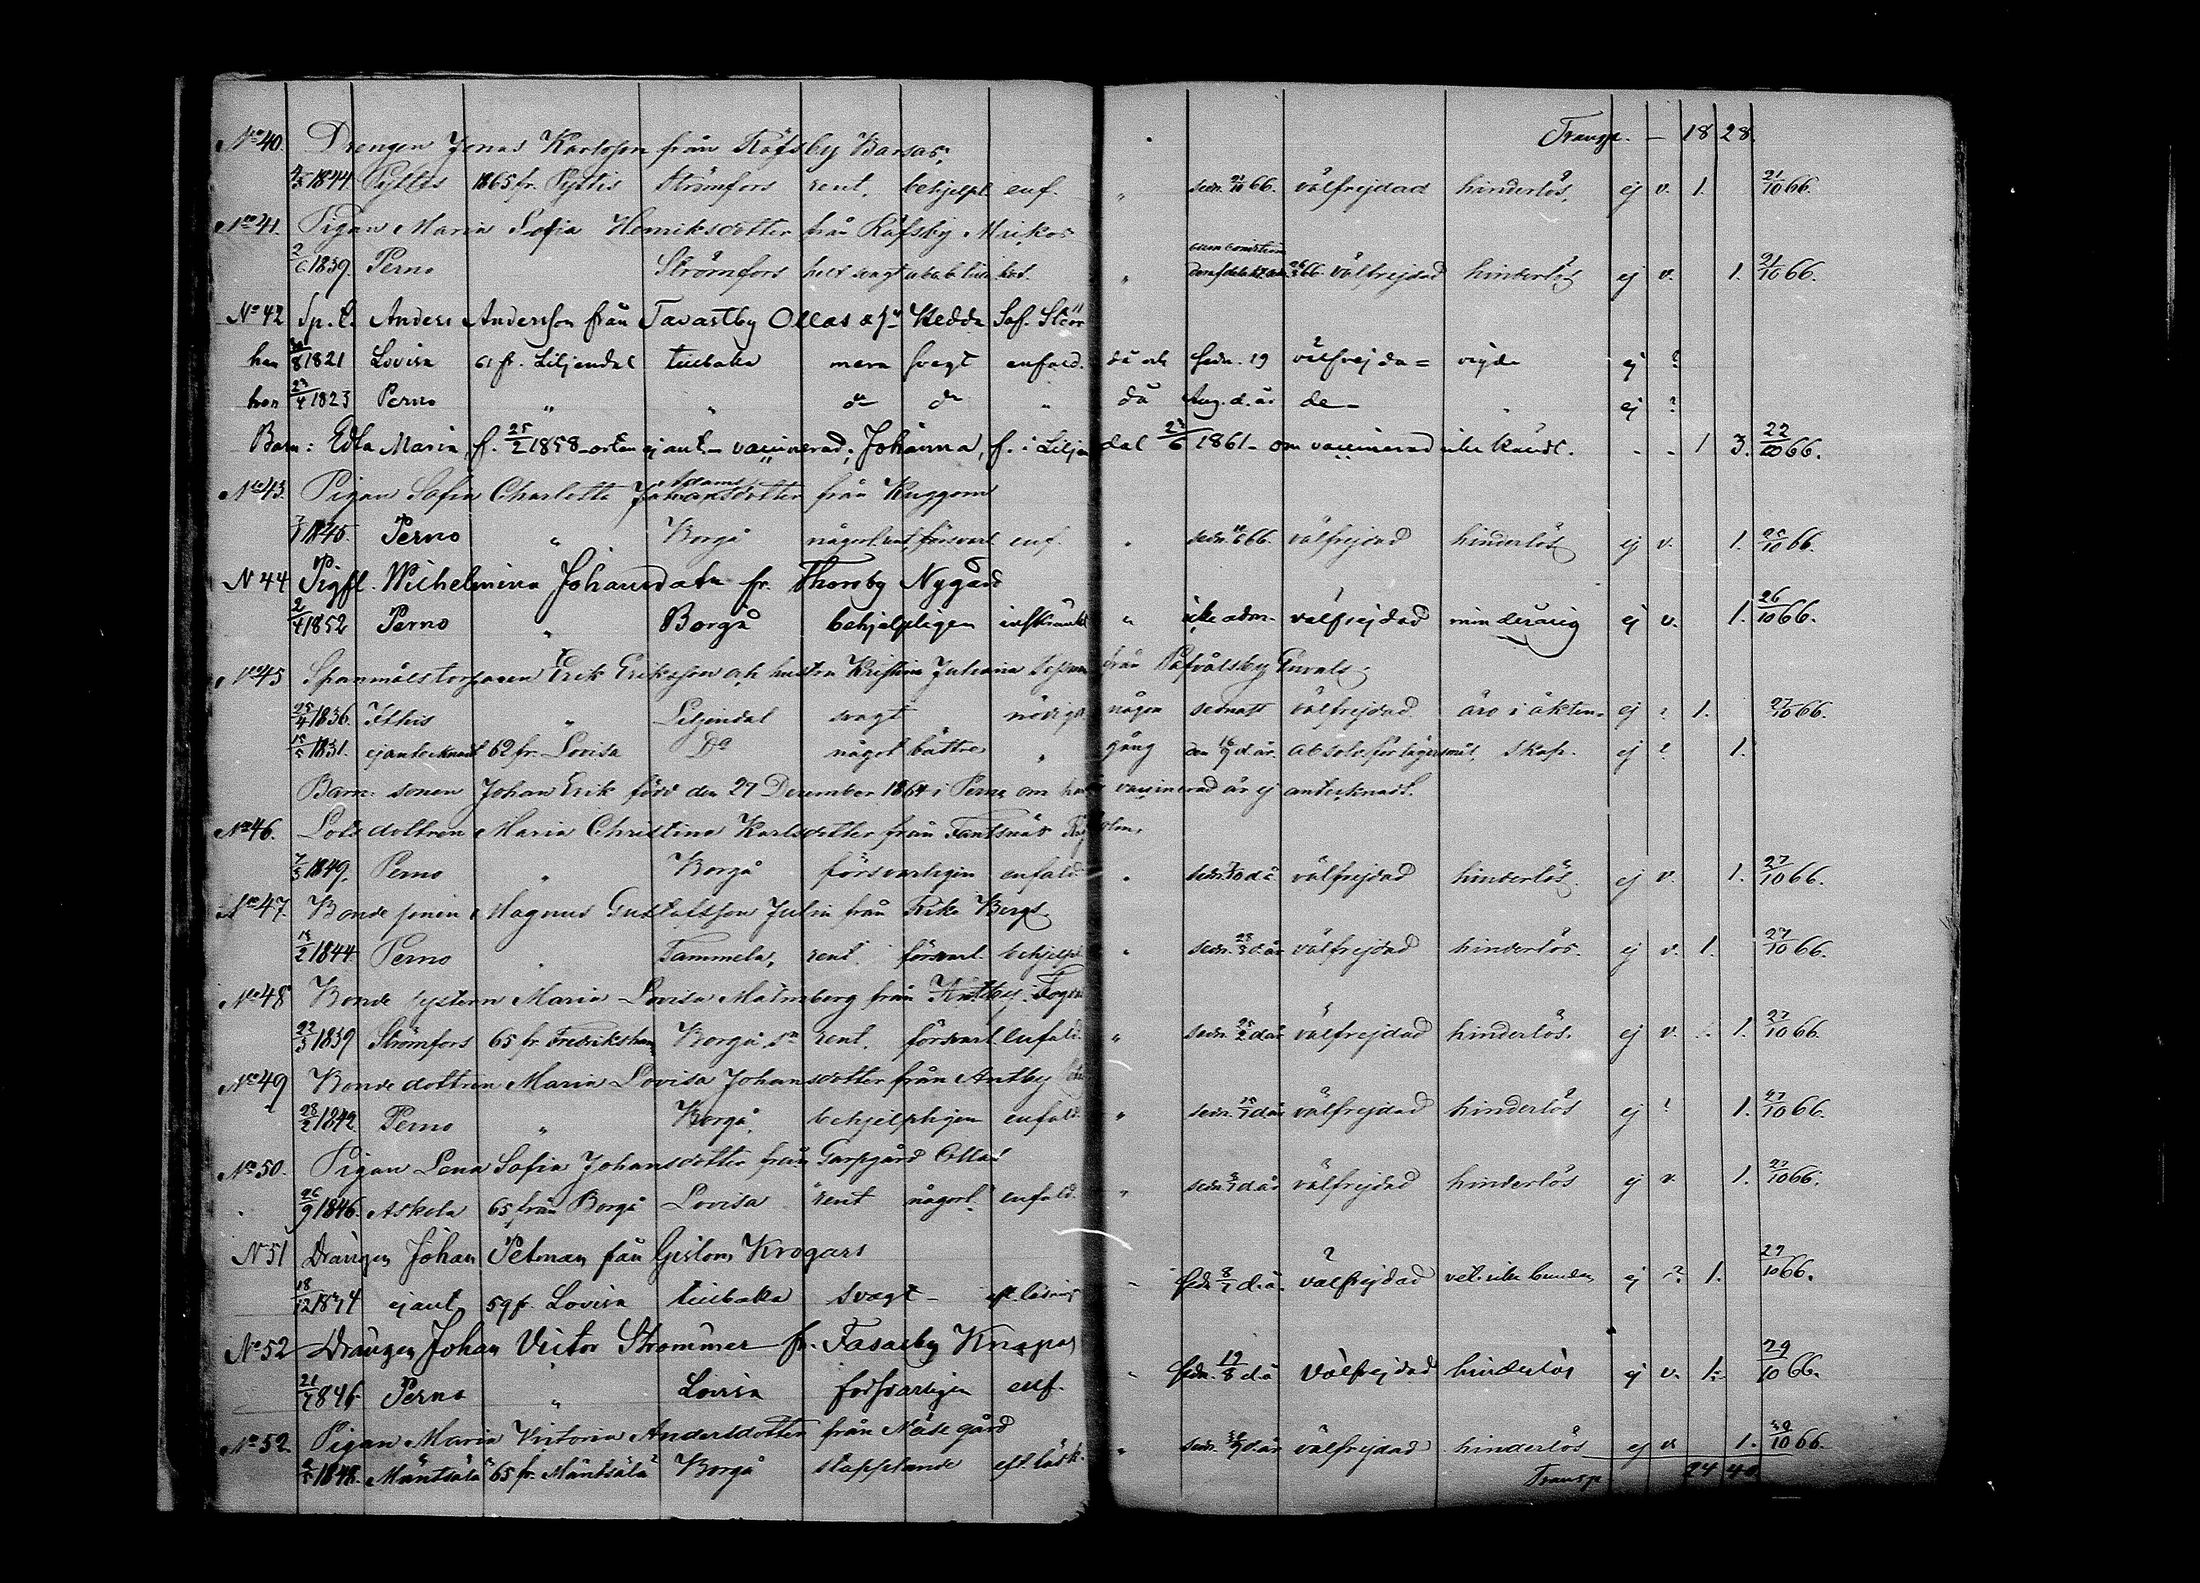 Transp. — 18 28.
No 40. Drengen Jonas Karlsson från Räfsby Barsas,
1844 Pyttis 1865 fr. Pyttis Strömfors rent, behjelpl. enf. " sedn. 21/10 66. välfrejdad hinderlös, ej v. 1. 21/10 66.
No 41. Pigan Maria Sofia Henriksdotter från Räfsby Mickos
1839. Perno Strömfors helt svagt " välfrejdad hinderlös ej v. 1. 21/10 66.
No 42 Anders Andersson från Tavastby Ollas Hedda Sof.
han 1821 Lovisa 61 fr. Liljendal tillbaka mera svagt enfald. då och sedn. 19 välfrejda = vigde ej ?
hon 23/4 1823 Perno " " do do " då Aug. d. år de — " ej ?
Barn: Edla Maria, f. 25/2 1858 - orten ej ant. - vaccinerad; Johanna, f. i Liljendal 23/6 1861 - om vaccinerad icke kändt. 1 3. 22/10 66.
No 43. Pigan Sofia Charlotta Adams Johansdotter från Kuggom
1845. Perno " Borgå någorl. rent, försvarl. enf. " sedn. 66. välfrejdad hinderlös ej v. 1. 25/10 66.
N 44 Pigfl. Wilhelmina Johansdotr fr. Thorsby Nygård
2/4 1852 Perno " Borgå behjelpligen inskränkt " icke adm. välfrejdad minderårig ej v. 1. 26/10 66.
No 45 Spanmålstorparen Erik Eriksson och hustru Kristina Juliana från Påfvalsby
25/4 1836. Ithis " Liljendal svagt nödigt någon sednast välfrejdad. äro i äkten- ej ? 1. 27/10 66.
1831. ej antecknadt 62 fr. Lovisa Do något bättre " gång den 16/9 d. år. absolv. för lägersmål, skap. ej ? 1.
Barn: sonen Johan Erik född den 27 December 1864 i Perno, om han är vaccinerad är ej antecknadt.
No 46. Lots dottren Maria Christina Karlsdotter från Fantsnäs
7/3 1849. Perno " Borgå försvarligen enfald. " välfrejdad hinderlös. ej v. 1. 27/10 66.
No 47. Bonde sonen Magnus Gustafsson Julin från Rike Bergs
1844 Perno " Tammela, rent. försvarl. behjelpl. " sedn. d. år välfrejdad hinderlös. ej v. 1. 27/10 66.
No 48 Bonde systern Maria Lovisa Malmberg från Antby.
22/3 1839 Strömfors 65 fr. Fredrikshamn Borgå sn rent. försvarl. enfald. " sedn. 25/2 d. år välfrejdad hinderlös. ej v. 1. 27/10 66.
No 49 Bonde dottren Maria Lovisa Johansdotter från Antby
28/2 1842 Perno " Borgå. behjelpligen enfald. " sedn. d. år välfrejdad hinderlös ej ? 1. 27/10 66.
No 50. Pigan Lena Sofia Johansdotter från Garpgård Ollas
26/9 1846. Askola 65 från Borgå Lovisa rent någorl. enfald. " sedn. d. år välfrejdad hinderlös ej v. 1. 27/10 66.
N 51 Drängen Johan Petman från Gislom Krogars
18/12 ej ant. 59 fr. Lovisa tillbaka svagt — " sedn. 8/7 d. å. välfrejdad vet. icke bunden ej ? 1. 29/10 66.
No 52 Drängen Johan Victor Strömmer fr. Fasarby Knapas
21/7 1846. Perno " Lovisa försvarligen enf. " sedn. 19/8 d. å. välfrejdad hinderlös ej v. 1. 29/10 66.
No 52. Pigan Maria Victoria Andersdotter från Näse gård
1848. Mäntsälä 65 fr. Mäntsälä Borgå stapplande " sedn. d. år välfrejdad hinderlös ej v. 1. 30/10 66.
Transp. 24 40